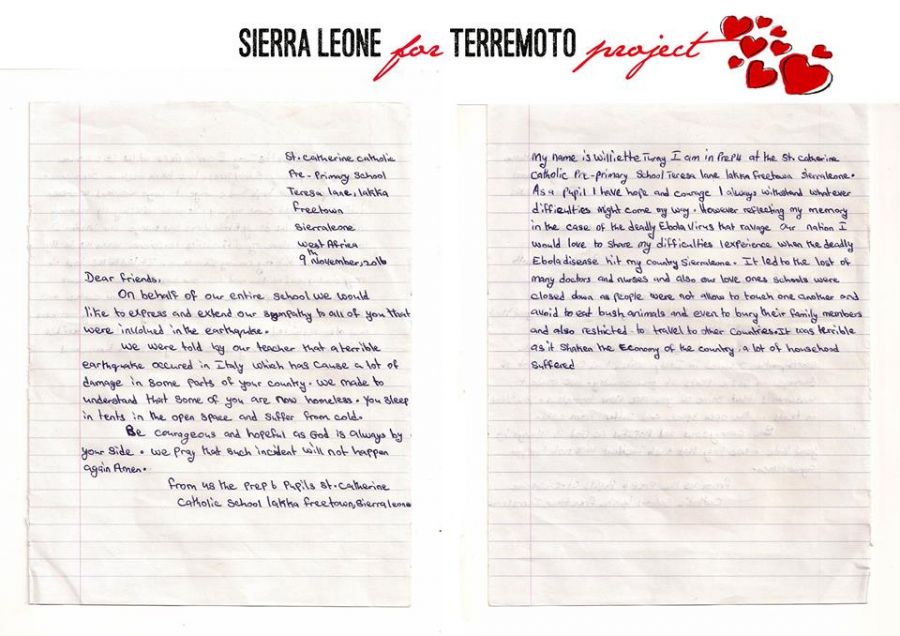 SIERRA LEONE for TERREMOTO project
St. Catherine Catholic
Pre-Primary School
Teresa lane, lakka
Freetown
Sierraleone
West Africa
9th November, 2016
Dear friends,
On behalf of our entire school we would
like to express and extend our sympathy to all of you that
were involved in the earthquake.
We were told by our teacher that a terrible
earthquake occured in Italy which has cause a lot of
damage in some parts of your country. We made to
understand that some of you are now homeless. You sleep
in tents in the open space and suffer from cold.
Be courageous and hopeful as God is always by
your side. We pray that such incident will not happen
again Amen.
From us the Prep 6 Pupils St. Catherine
Catholic School lakka freetown, Sierraleone
My name is Williette Turay I am in Prep 4 at the St. Catherine
Catholic Pre-primary School Teresa lane lakka Freetown Sierraleone.
As a pupil I have hope and courage I always withstand whatever
difficulties might come my way. However reflecting my memory
in the case of the deadly Ebola Virus that ravage our nation I
would love to share my difficulties I experience when the deadly
Ebola disease hit my country Sierraleone. It led to the lost of
many doctors and nurses and also our love ones schools were
closed down as people were not allow to touch one another and
avoid to eat bush animals and even to bury their family members
and also restricted to travel to other Countries. It was terrible
as it shaken the Economy of the country a lot of household
suffered